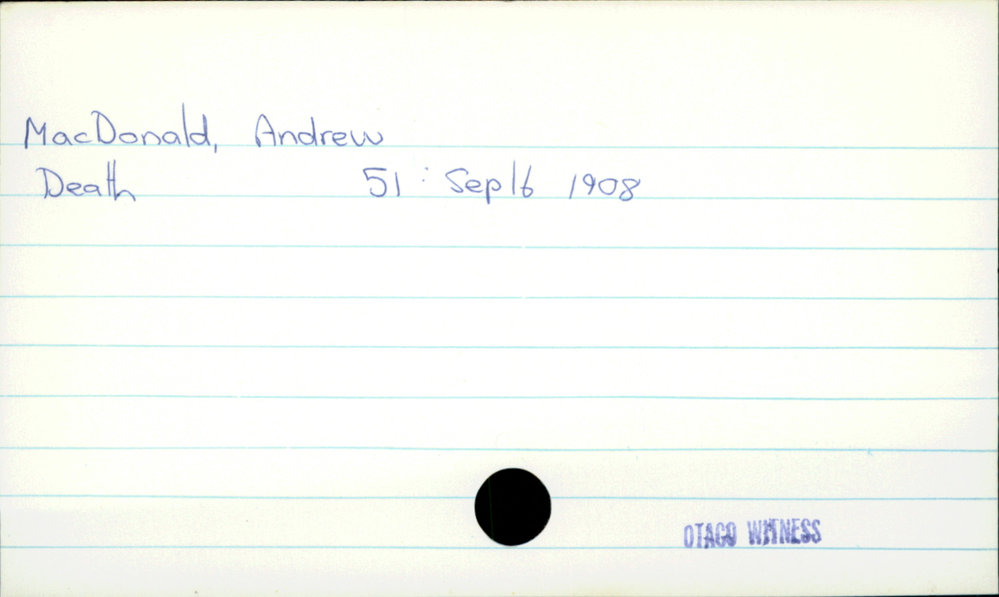 MacDonald, Andrew
Death 51 : Sep 16 1908
OTAGO WITNESS